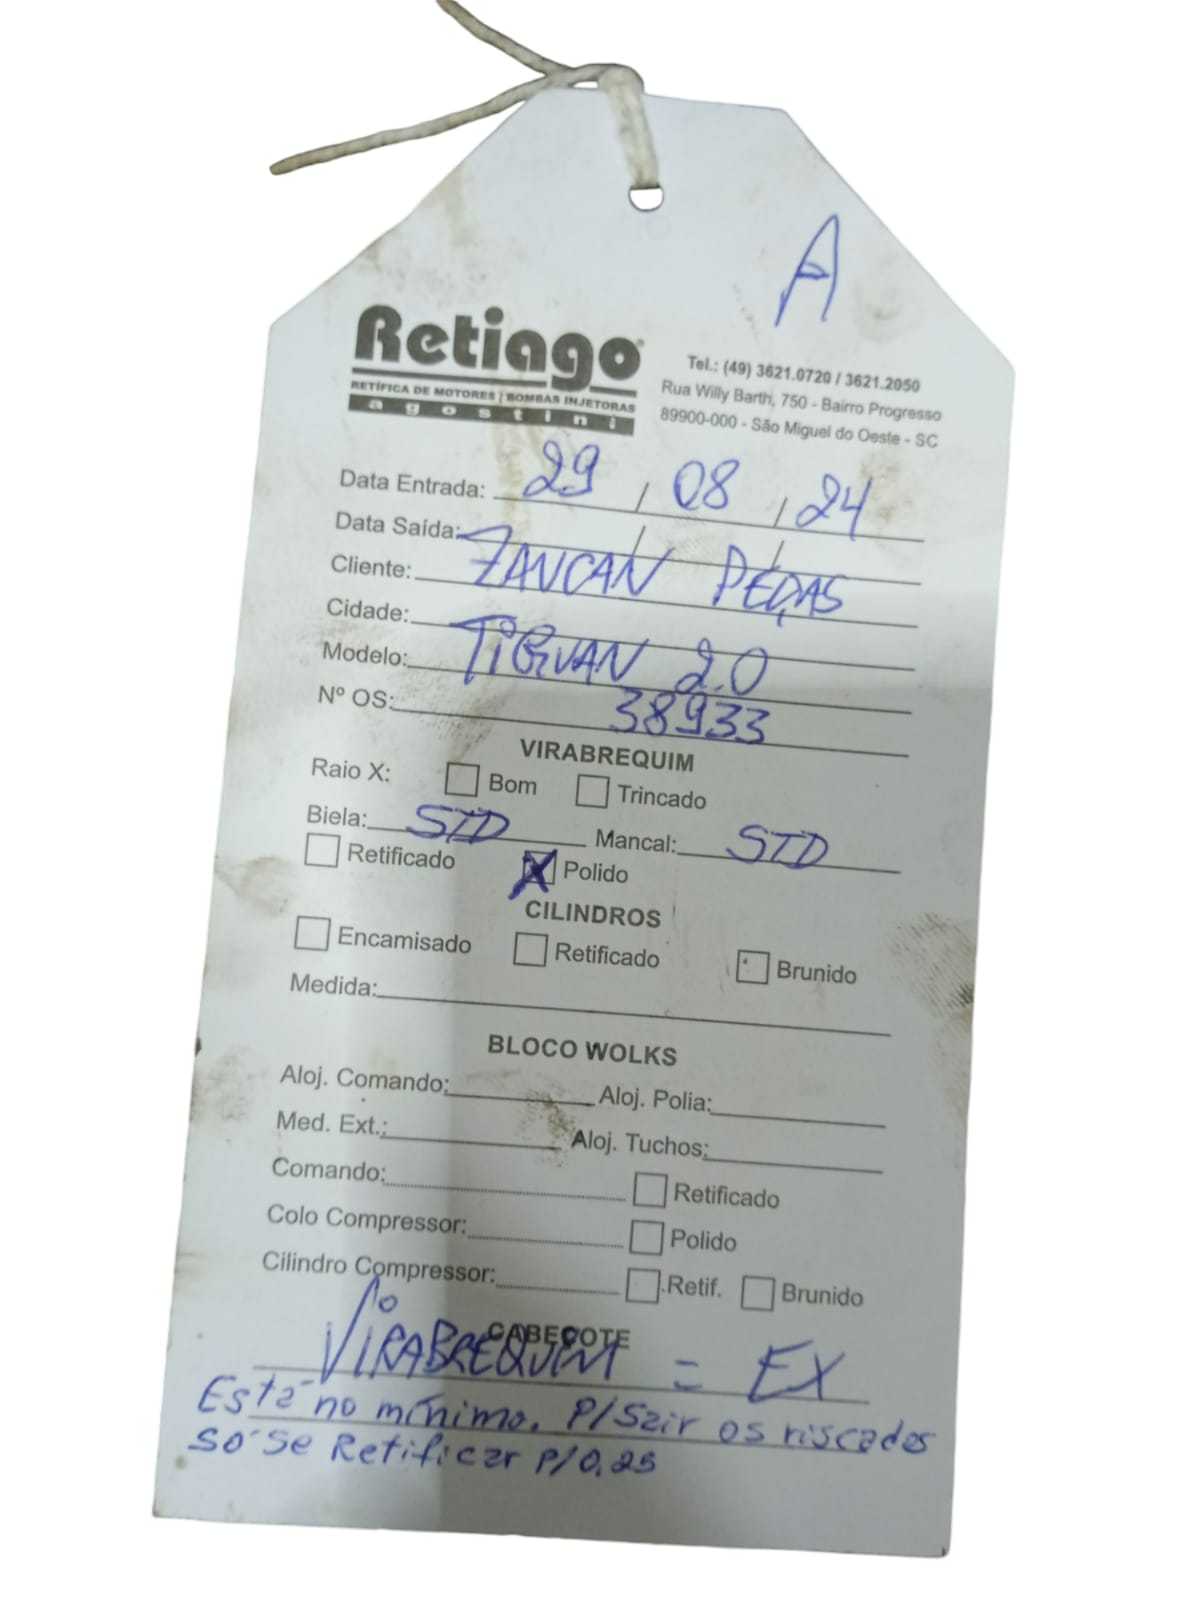 A
Retiago
RETÍFICA DE MOTORES | BOMBAS INJETORAS
agostini
Tel.: (49) 3621.0720 / 3621.2050
Rua Willy Barth, 750 - Bairro Progresso
89900-000 - São Miguel do Oeste - SC
Data Entrada: 29 / 08 / 24
Data Saída: / /
Cliente: ZANCAN PEÇAS
Cidade:
Modelo: TIGUAN 2.0
Nº OS: 38933
VIRABREQUIM
Raio X: Bom Trincado
Biela: STD Mancal: STD
Retificado X Polido
CILINDROS
Encamisado Retificado Brunido
Medida:
BLOCO WOLKS
Aloj. Comando: Aloj. Polia:
Med. Ext.: Aloj. Tuchos:
Comando: Retificado
Colo Compressor: Polido
Cilindro Compressor: Retif. Brunido
CABEÇOTE
VIRABREQUIM = EX
Está no mínimo. P/Sair os riscados
só se Retificar P/0,25